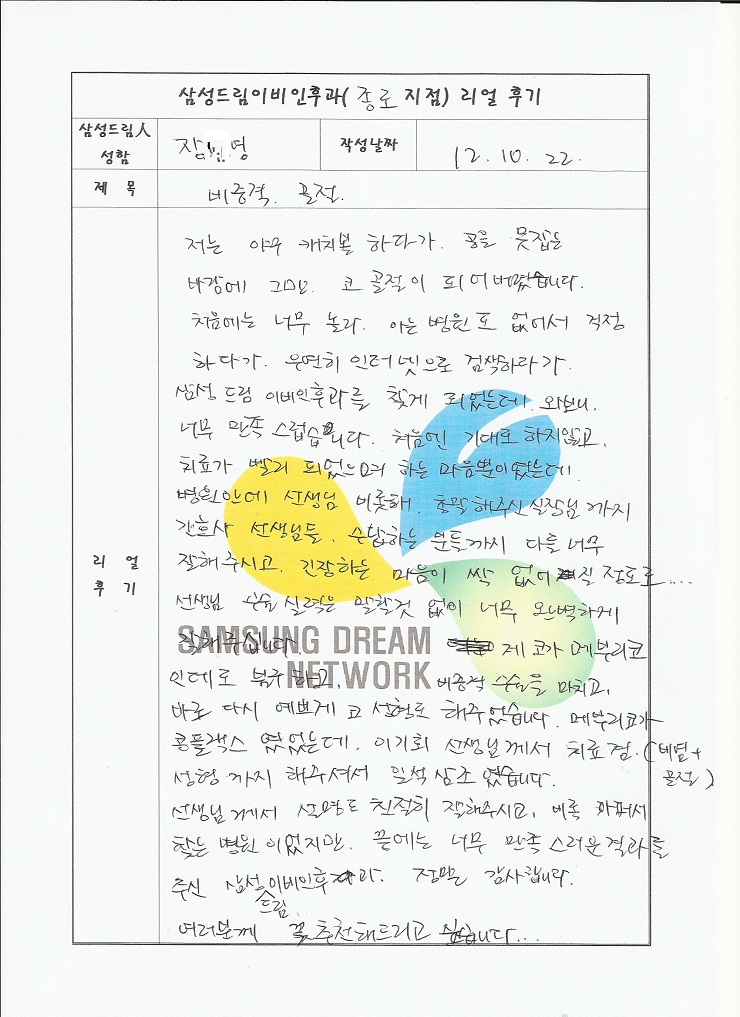 삼성드림이비인후과( 종로 지점) 리얼 후기
삼성드림人 성함
장 영
작성날짜
12. 10. 22.
제 목
비중격. 골절.
리 얼 후 기
저는 야구 캐치볼 하다가. 공을 못잡는
바람에 그만. 코 골절이 되어버렸습니다.
처음에는 너무 놀라. 아는 병원도 없어서 걱정
하다가. 우연히 인터넷으로 검색하다가.
삼성 드림 이비인후과를 찾게 되었는데. 와보니.
너무 만족 스럽습니다. 처음엔 기대도 하지않고.
치료가 빨리 되었으며 하는 마음뿐이였는데.
병원안에 선생님 비롯해. 총괄해주신 실장님 까지
간호사 선생님들. 수납하는 분들까지 다들 너무
잘해주시고. 긴장하는 마음이 싹 없어질 정도로....
선생님 수술 실력은 말할것 없이 너무 완벽하게
잘해주십니다. 제 코가 메부리코
SAMSUNG DREAM
NETWORK
인데도 불구하고. 비중격 수술을 마치고.
바로 다시 예쁘게 코 성형도 해주었습니다. 메부리코가
콤플랙스 였었는데. 이기회 선생님께서 치료겸. (비염+
성형 까지 해주셔서 일석 삼조 였습니다. 골절)
선생님께서 설명도 친절히 잘해주시고. 비록 아파서
찾는 병원 이었지만. 끝에는 너무 만족 스러운 결과를
주신 삼성드림이비인후과. 정말 감사합니다.
여러분께 꼭 추천해드리고 싶습니다...